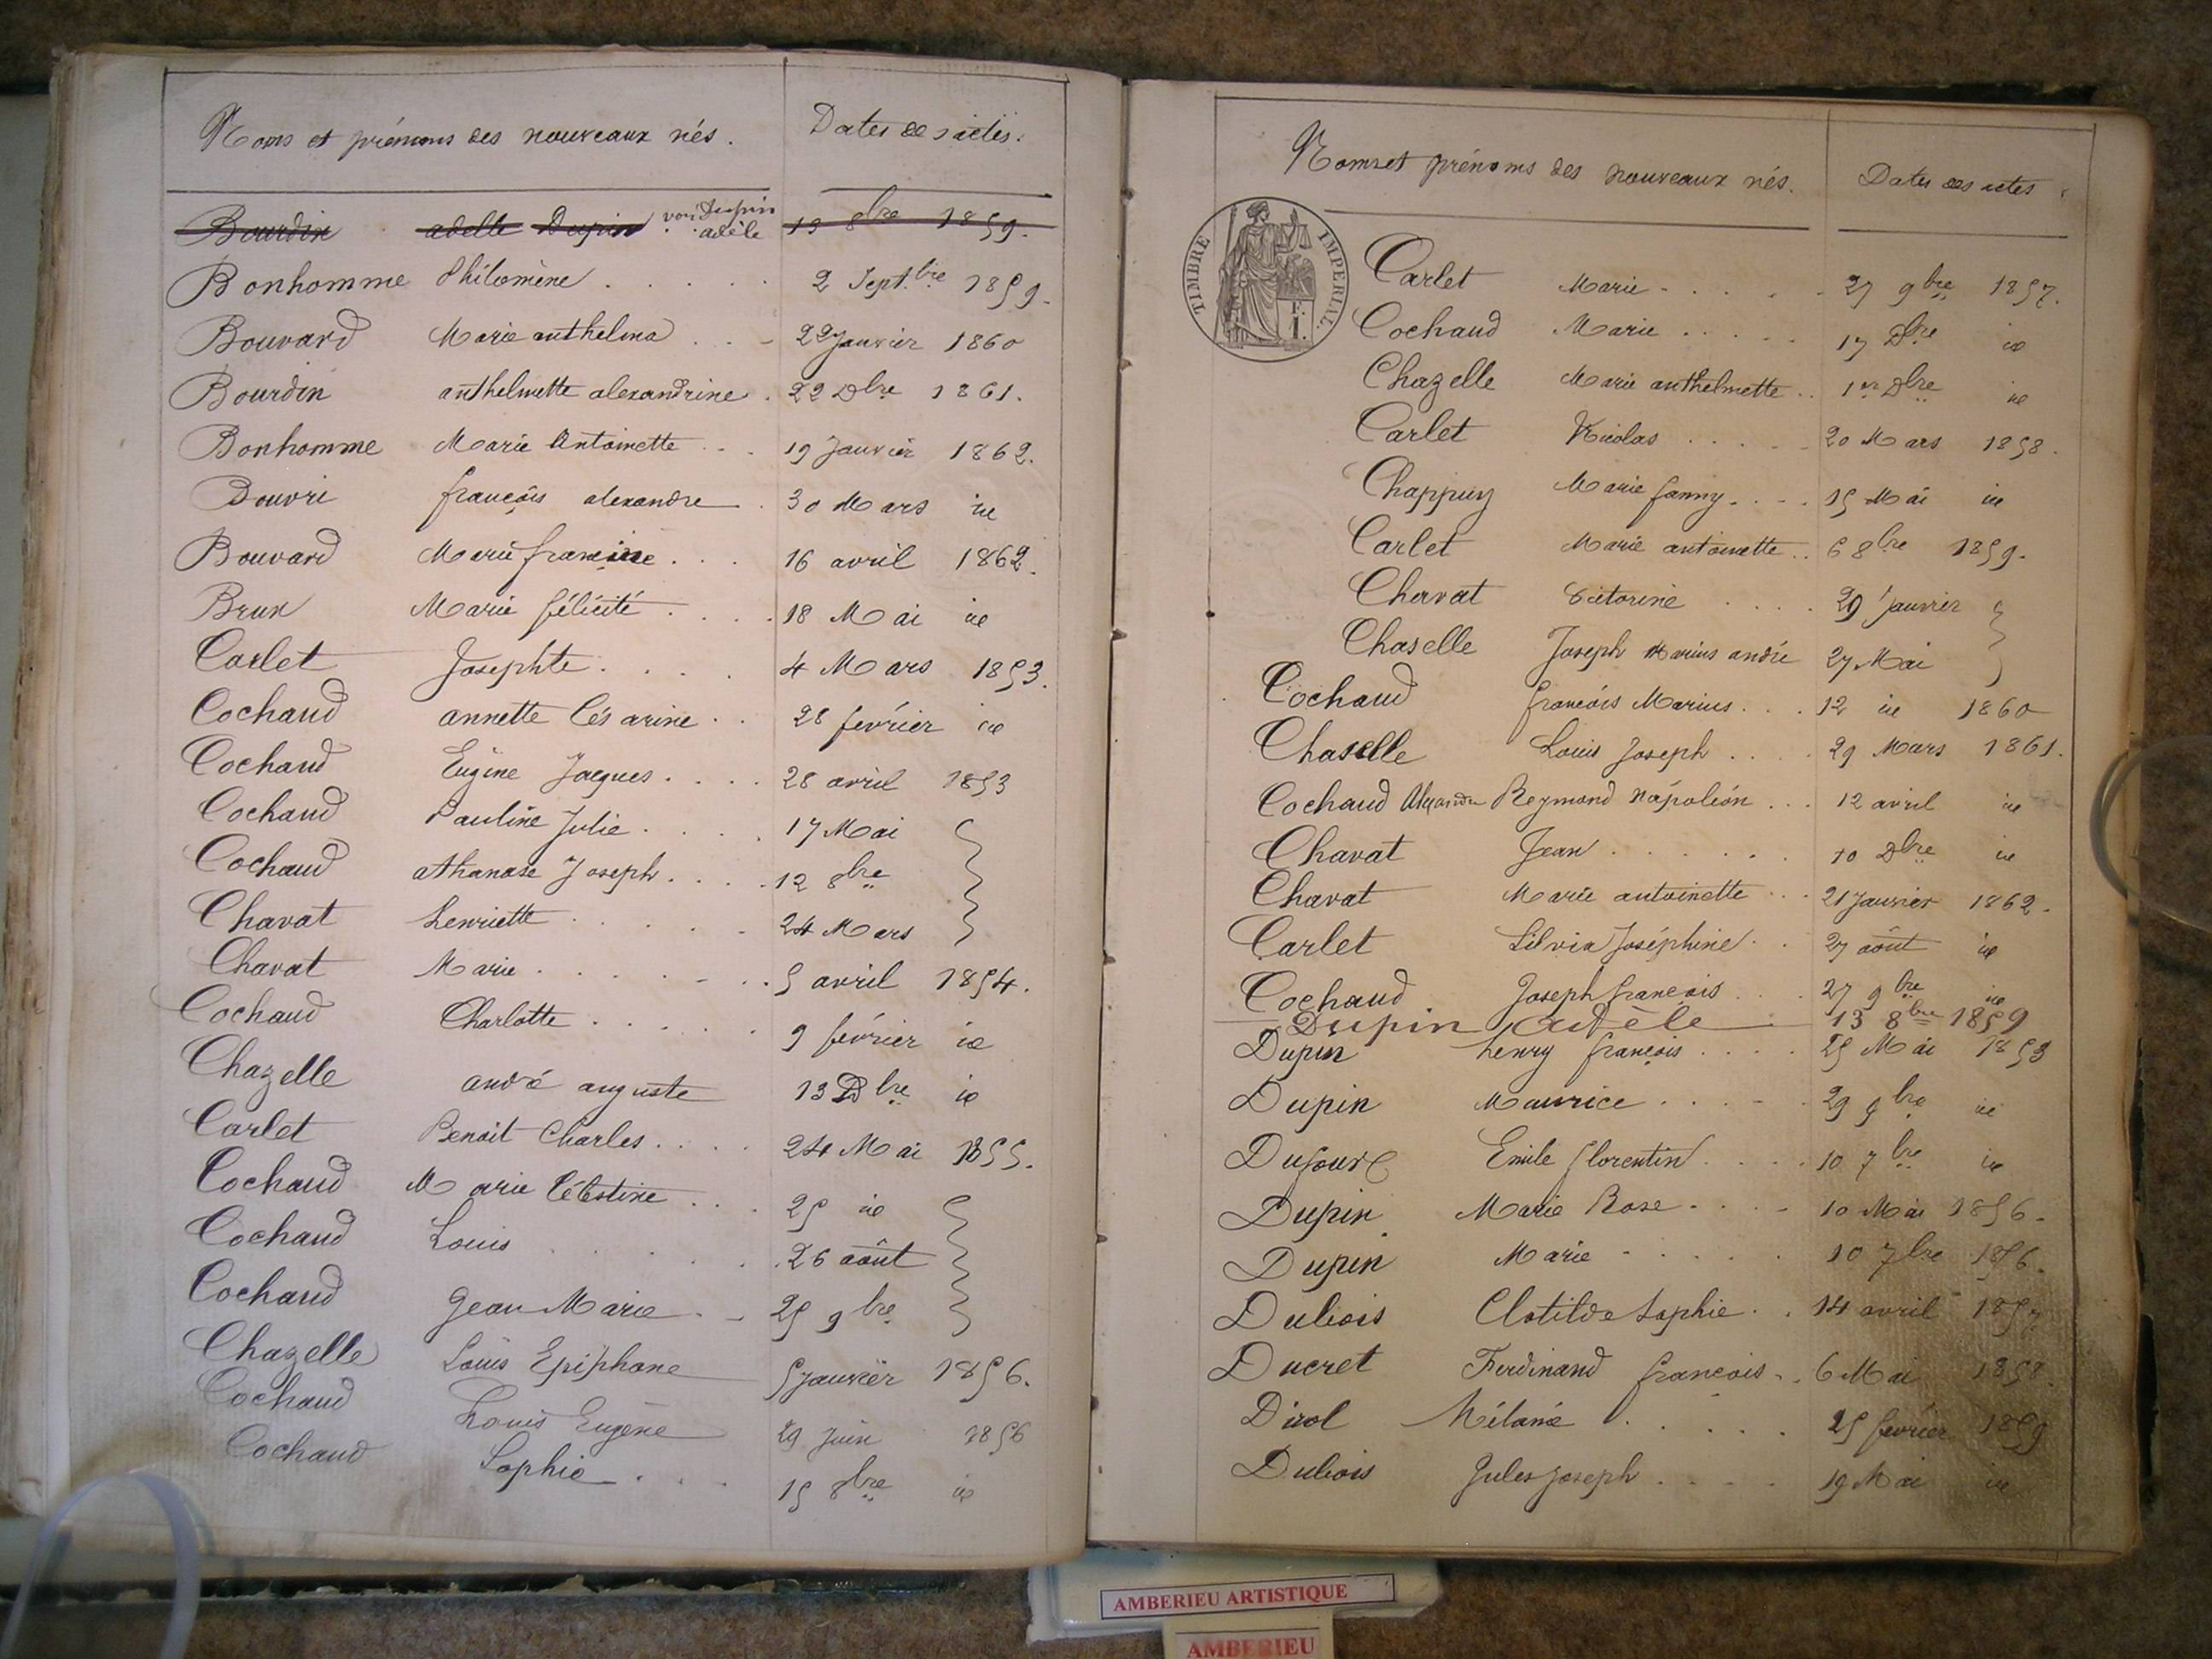 Noms et prénoms des nouveaux nés. Dates des actes.
Bourdin adelle Dupin voir Dupin adèle 13 8bre 1859.
Bonhomme Philomène 2 Septbre 1859.
Bouvard Marie anthelma 22 Janvier 1860
Bourdin anthelmette alexandrine 22 Dbre 1861.
Bonhomme Marie Antoinette 19 Janvier 1862.
Bouvri françois alexandre 30 Mars id
Bouvard Marie francine 16 avril 1862.
Brun Marie félicité 18 Mai id
Carlet Josephte 4 Mars 1853.
Cochaud annette Césarine 28 février id
Cochaud Eugène Jacques 28 avril 1853
Cochaud Pauline Julie 17 Mai
Cochaud athanase Joseph 12 8bre
Chavat henriette 24 Mars
Chavat Marie 5 avril 1854.
Cochaud Charlotte 9 février id
Chazelle andré auguste 13 Dbre id
Carlet Benoit Charles 24 Mai 1855.
Cochaud Marie Célestine 25 id
Cochaud Louis 26 août
Cochaud Jean Marie 25 9bre
Chazelle Louis Epiphane 5 Janvier 1856.
Cochaud Louis Eugène 29 Juin 1856
Cochaud Sophie 15 8bre id
Noms et prénoms des nouveaux nés. Dates des actes.
TIMBRE IMPERIAL.
Carlet Marie 27 9bre 1857.
Cochaud Marie 17 Dbre id
Chazelle Marie anthelmette 1er Dbre id
Carlet Nicolas 20 Mars 1858.
Chappuy Marie fanny 15 Mai id
Carlet Marie antoinette 6 8bre 1859.
Chavat Victorine 29 Janvier
Chaselle Joseph Marius andré 27 Mai
Cochaud françois Marius 12 id 1860
Chaselle Louis Joseph 29 Mars 1861.
Cochaud Alexandre Reymond Napoléon 12 avril id
Chavat Jean 10 Dbre id
Chavat Marie antoinette 21 Janvier 1862.
Carlet Silvia Joséphine 27 août id
Cochaud Joseph françois 27 9bre id
Dupin adèle 13 8bre 1859
Dupin henry françois 25 Mai 1853
Dupin Maurice 29 9bre id
Dufour Emile florentin 10 7bre id
Dupin Marie Rose 10 Mai 1856.
Dupin Marie 10 7bre 1856.
Dubois Clotilde Sophie 14 avril 1857
Ducret Ferdinand françois 6 Mai 1858.
Dirol Mélanie 25 février 1859
Dubois Jules Joseph 19 Mai id
AMBERIEU ARTISTIQUE
AMBERIEU